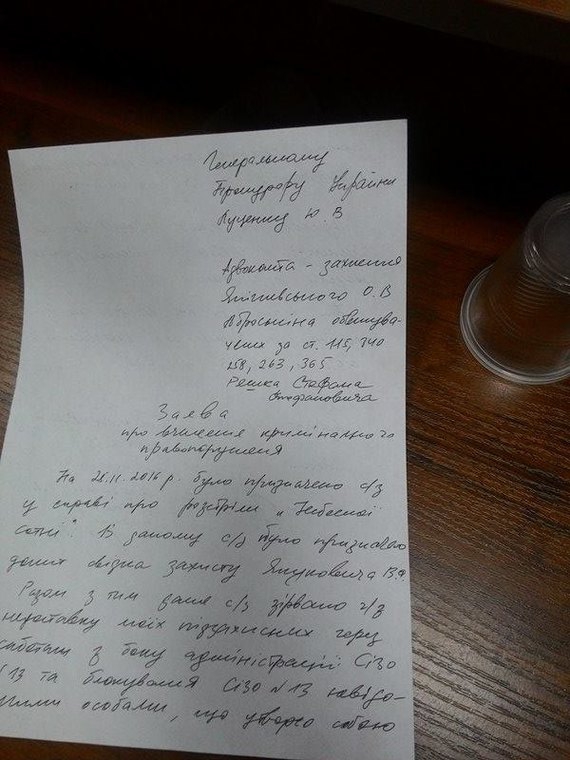 Генеральному
Прокурору України
Луценку Ю. В
Адвоката - захисника
О. В
Аброськіна обвинува-
чених за ст. 115, 340
258, 263, 365
Решка Стефана
Стефановича
Заява
про вчинення кримінального
правопорушення
На 25.11.2016 р. було призначено с/з
у справі про розстріли „Небесної
сотні". В даному с/з було призначено
допит свідка захисту Януковича В.Ф.
Разом з тим дане с/з зірвано ч/з
недоставку моїх підзахисних через
саботаж з боку адміністрації Сізо
№13 та блокування Сізо №13 невідо-
мими особами, що